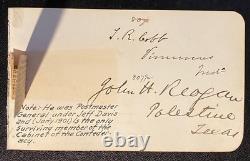 807
J. R. Cobb
Vincennes
Ind.
807½
John H. Reagan
Palestine
Note: He was Postmaster
General under Jeff Davis
and (Jany 1901) is the only
surviving member of the
Cabinet of the Confeder-
acy.